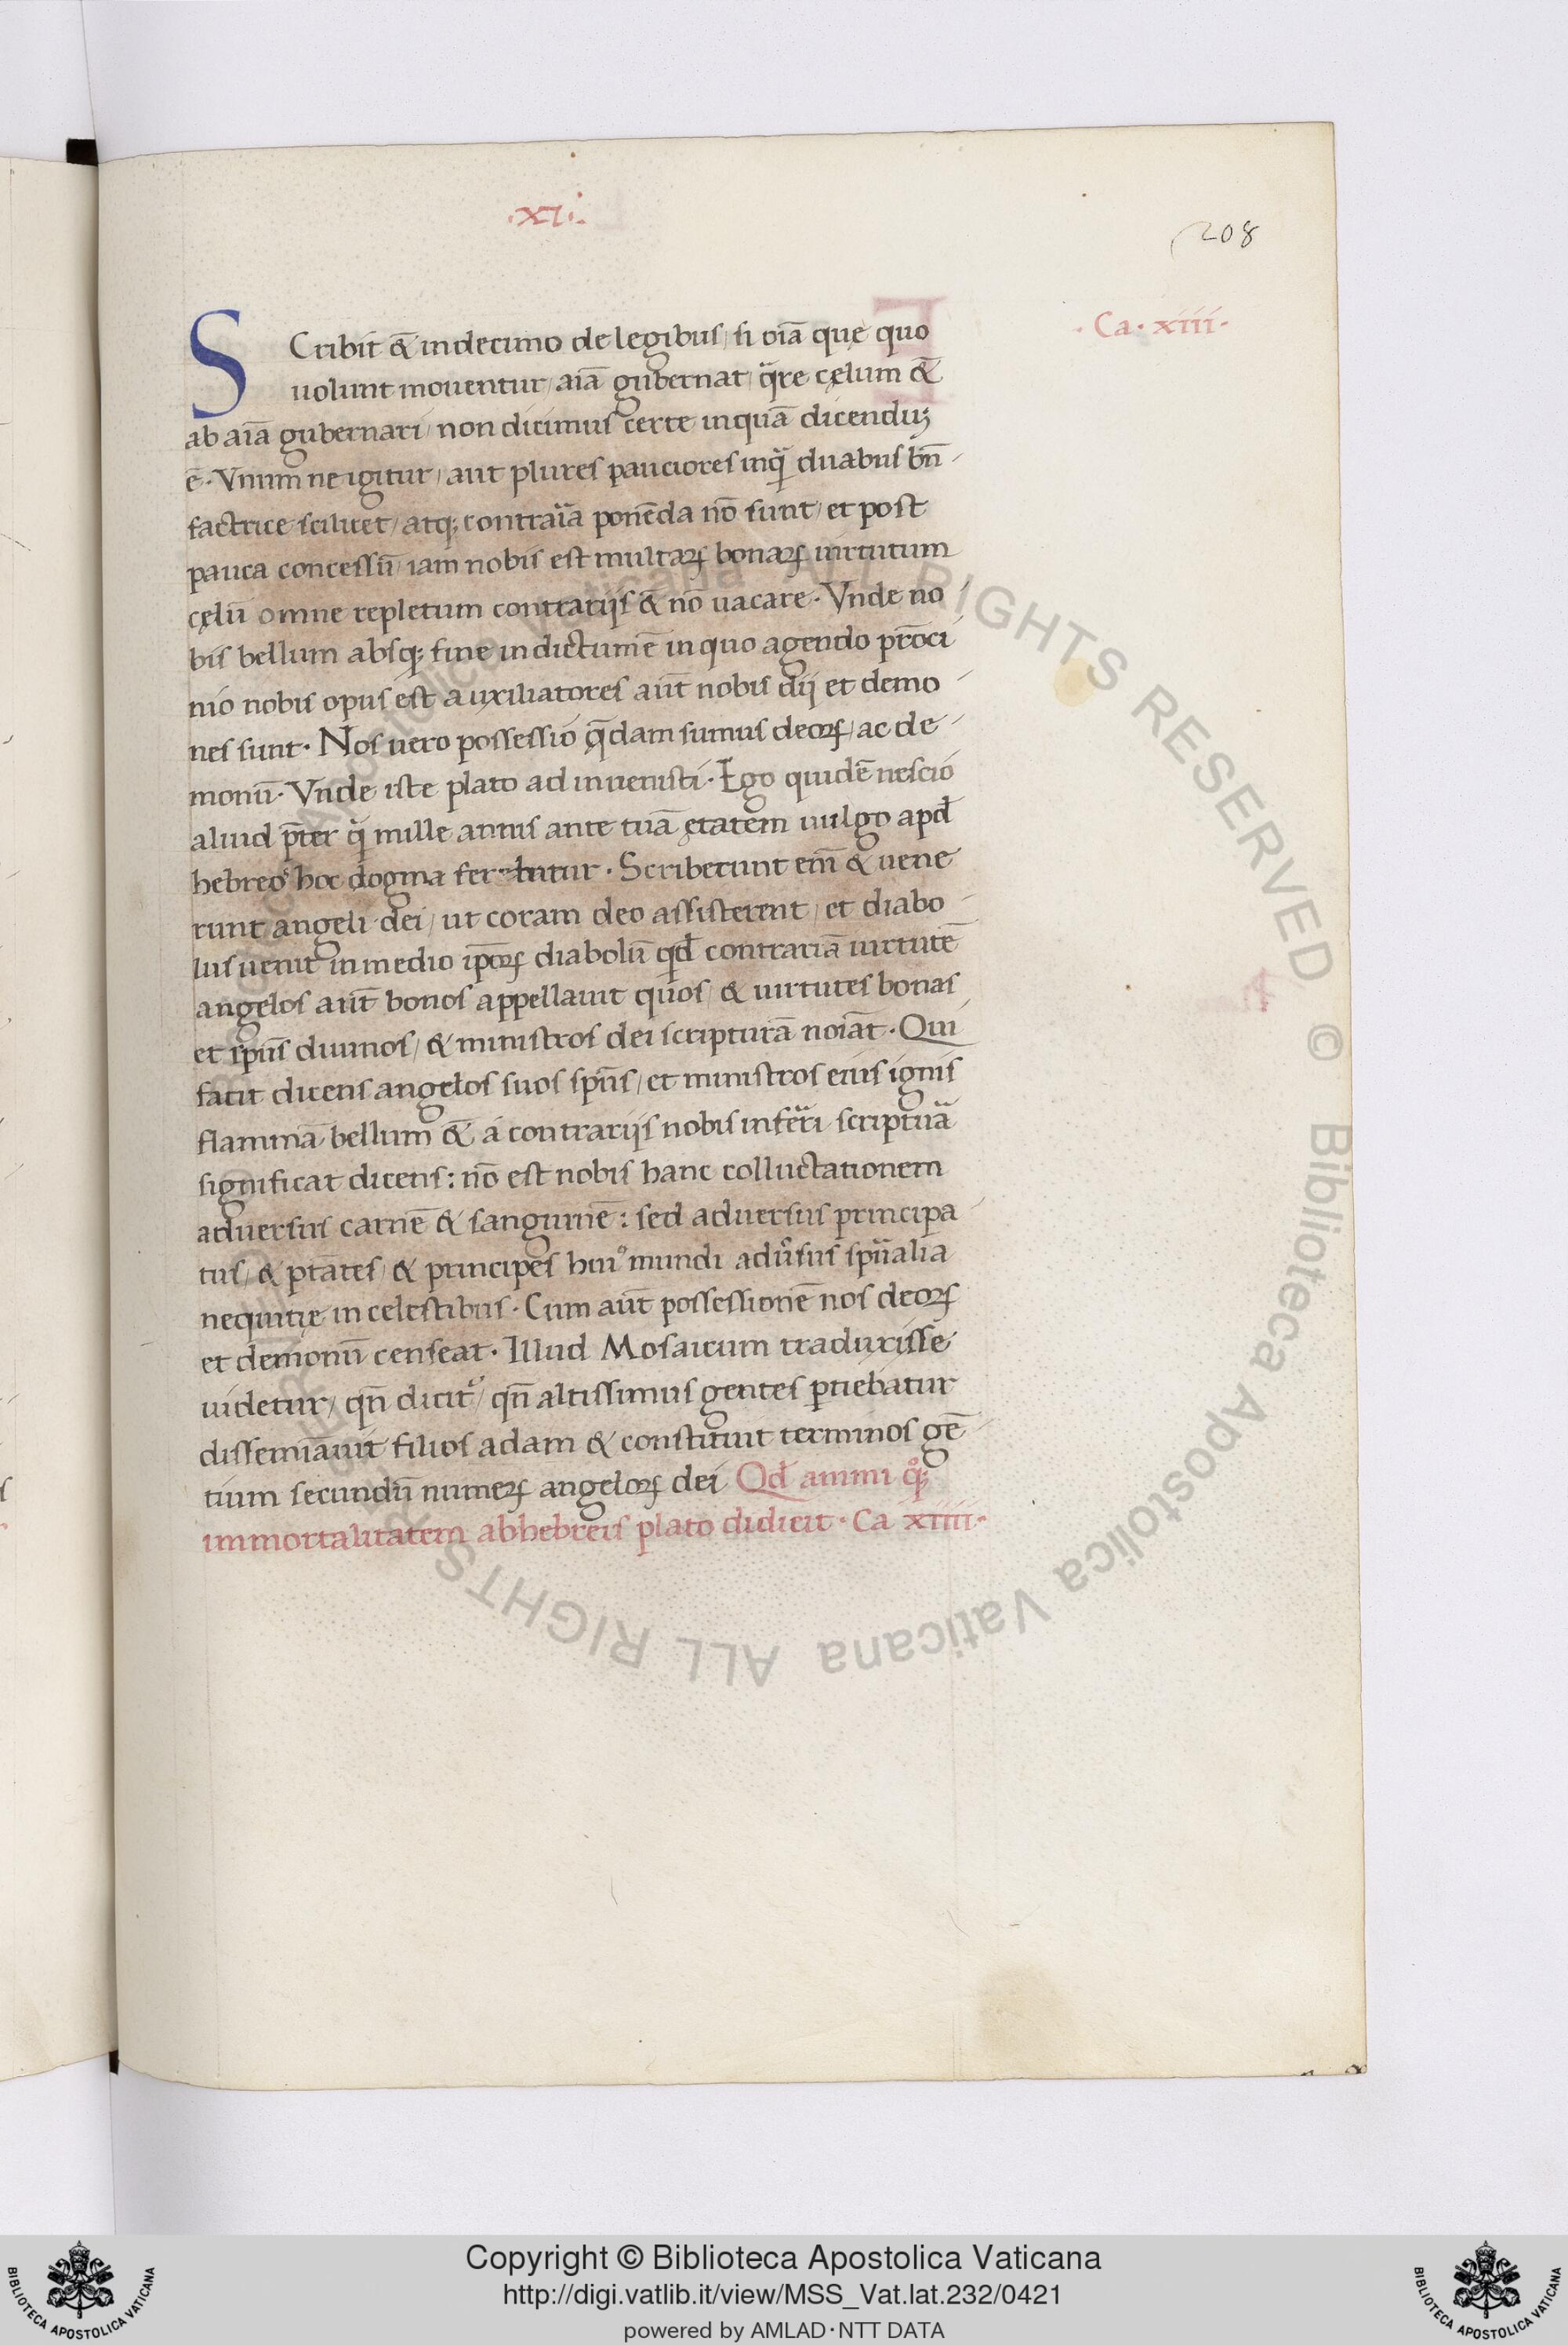 ·xi·
208
· Ca · xiii ·
SCribit & in decimo de legibus / si oīa quę quo
uolunt mouentur / aīa gubernat / q̄re cęlum &
ab aīa gubernari / non dicimus certe inquā dicenduȝ
ē · Vnum ne igitur / aut plures pauciores inq̄ duabus bn̄
factrice scilicet / atqꝫ contrar̄ia ponēda nō sunt / et post
pauca concessū iam nobis est multaꝝ bonaꝝ uirtutum
cęlū omne repletum contrarijs & nō uacare · Vnde no
bis bellum absqꝫ fine indictum ē in quo agendo prōci
nio nobis opus est auxiliatores aūt nobis dij et demo
nes sunt · Nos uero possessio q̄dam sumus deoꝝ / ac de
monū · Vnde iste plato adinuenisti · Ego quidē nescio
aliud p̄ter q̄ mille annis ante tuā ętatem uulgo apd̄
hebreos hoc dogma ferebatur · Scriberunt em̄ & uene
runt angeli dei / ut coram deo assisterent / et diabo
lus uenit in medio ip̄oꝝ diabolū qd̄ contrariā uirtutē
angelos aūt bonos appellauit quos / & uirtutes bonas
et sp̄us diuinos / & ministros dei scripturā noīat · Qui
facit dicens angelos suos sp̄us / et ministros eius ignis
flammā bellum & á contrarijs nobis inferri scriptur̄a
significat dicens : nō est nobis hanc colluctationem
aduersus carnē & sanguinē : sed aduersus principa
tus / & p̄tātes / & principes huiꝰ mundi adu̓sus sp̄ualia
nequitię in celestibus · Cum aūt possessionē nos deoꝝ
et demonū censeat · Illud Mosaicum traduxisse
uidetur / qn̄ dicit̓ / qn̄ altissimus gentes ꝑtiebatur
dissemīauit filios adam & constituit terminos gē
tium secundū numeꝝ angeloꝝ dei Qd̄ animi qͦꝫ
immortalitatem ab hebreis plato didicit · Ca xiiii ·
Copyright © Biblioteca Apostolica Vaticana
http://digi.vatlib.it/view/MSS_Vat.lat.232/0421
powered by AMLAD·NTT DATA